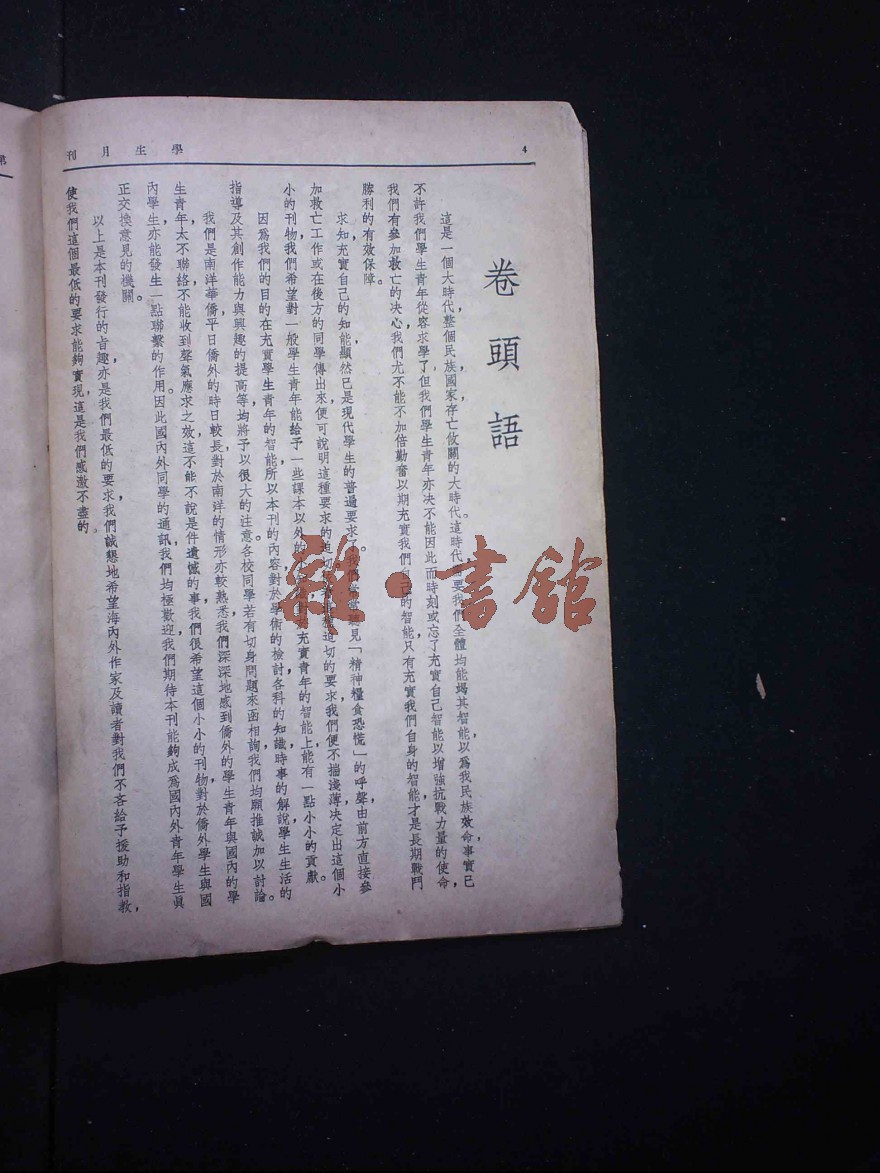 4
學生月刊
卷頭語
這是一個大時代，整個民族國家存亡攸關的大時代。這時代需要我們全體均能竭其智能以爲我民族效命，事實已
不許我們學生青年從容求學了，但我們學生青年亦决不能因此而時刻或忘了充實自己智能以增強抗戰力量的使命，
我們有參加救亡的决心，我們尤不能不加倍勤奮以期充實我們自己的智能，只有充實我們自身的智能才是長期戰鬥
勝利的有效保障。
求知，充實自己的知能，顯然已是現代學生的普遍要求了。我們常常聽見「精神糧食恐慌」的呼聲，由前方直接參
加救亡工作或在後方的同學傳出來，便可說明這種要求的迫切。迫切的要求，我們便不揣淺薄，决定出這個小
小的刊物，我們希望對一般學生青年能給予一些課本以外的充實青年的智能上能有一點小小的貢獻。
因爲我們的目的在充實學生青年的智能，所以本刊的內容對於學術的檢討，各科的知識，時事的解說，學生生活的
指導及其創作能力與興趣的提高等，均將予以很大的注意。各校同學若有切身問題來函相詢，我們均願推誠加以討論。
我們是南洋華僑，平日僑外的時日較長，對於南洋的情形亦較熟悉，我們深深地感到僑外的學生青年與國內的學
生青年，太不聯絡，不能收到聲氣應求之效，這不能不說是件遺憾的事，我們很希望這個小小的刊物，對於僑外學生與國
內學生，亦能發生一點聯繫的作用。因此國內外同學的通訊，我們均極歡迎，我們期待本刊能夠成爲國內外青年學生眞
正交換意見的機關。
以上是本刊發行的旨趣，亦是我們最低的要求，我們誠懇地希望海內外作家及讀者對我們不吝給予援助和指敎，
使我們這個最低的要求能夠實現，這是我們感激不盡的。
雜·書館
第